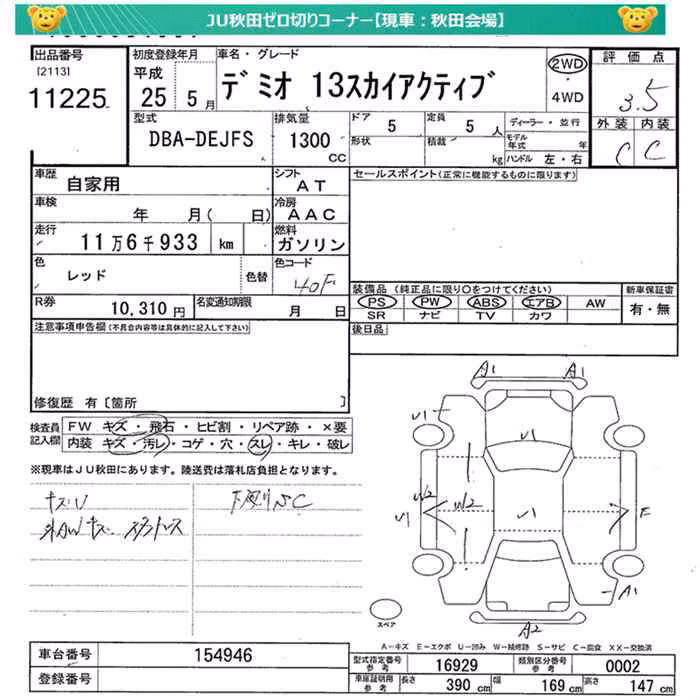 JU秋田ゼロ切りコーナー【現車：秋田会場】
出品番号
[2113]
11225
初度登録年月
平成
25 5月
車名・グレード
デミオ 13スカイアクティブ
2WD
4WD
評価点
3.5
型式
DBA-DEJFS
排気量
1300
CC
ドア 5
形状
定員 5 人
積載 kg
ディーラー・並行
モデル年式 年
ハンドル 左・右
外装 内装
C C
車歴
自家用
シフト
AT
セールスポイント(正常に機能するものに限ります)
車検
年 月( 日)
冷房
AAC
走行
11万6千933 km
燃料
ガソリン
色
レッド
色替
色コード
40F
装備品 (純正品に限り○をつけてください)
PS PW ABS エアB AW
SR ナビ TV カワ
新車保証書
有・無
R券
10,310円
名変通知期限
月 日
注意事項申告欄(不具合内容等は具体的に記入して下さい)
後日品
修復歴 有[箇所 ]
検査員記入欄
FW キズ・飛石・ヒビ割・リペア跡・×要
内装 キズ・汚レ・コゲ・穴・スレ・キレ・破レ
※現車はJU秋田にあります。陸送費は落札店負担となります。
キズU
下廻りSC
A1 A1
U1
U1
W2 W2
U1
U1
F
A1
A2
スペア
A－キズ E－エクボ U－凹み W－補修跡 S－サビ C－腐食 XX－交換済
車台番号
154946
登録番号
型式指定番号参考
16929
類別区分番号参考
0002
車庫証明用参考
長さ 390 cm 幅 169 cm 高さ 147 cm